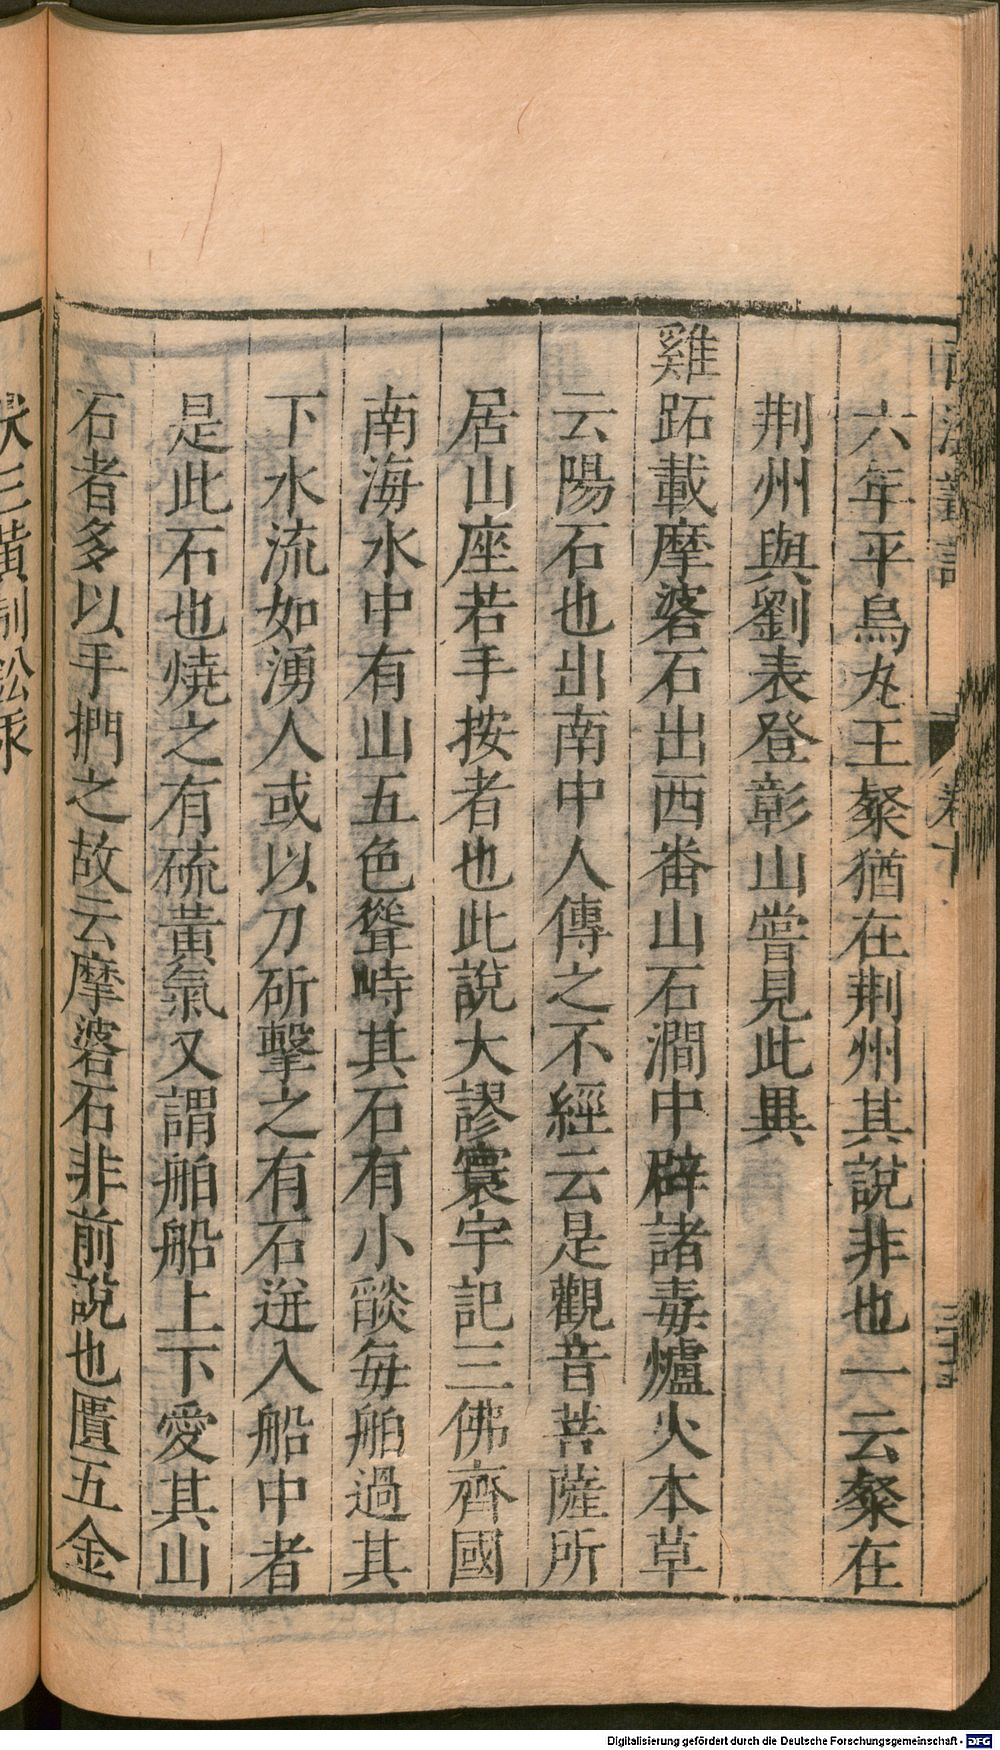 六年平烏丸王粲猶在荆州其說非也一云粲在
荆州與劉表登彰山嘗見此異
雞跖載摩婆石出西番山石澗中辟諸毒爐火本草
云陽石也出南中人傳之不經云是觀音菩薩所
居山座若手按者也此說大謬寰宇記三佛齊國
南海水中有山五色聳峙其石有小燄每舶過其
下水流如湧人或以刀斫擊之有石迸入船中者
是此石也燒之有硫黃氣又謂舶船上下愛其山
石者多以手捫之故云摩婆石非前說也匱五金
卷十
三十三
Digitalisierung gefördert durch die Deutsche Forschungsgemeinschaft - DFG